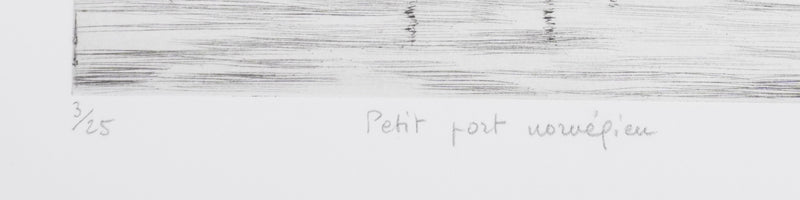 3/25 Petit port norvégien